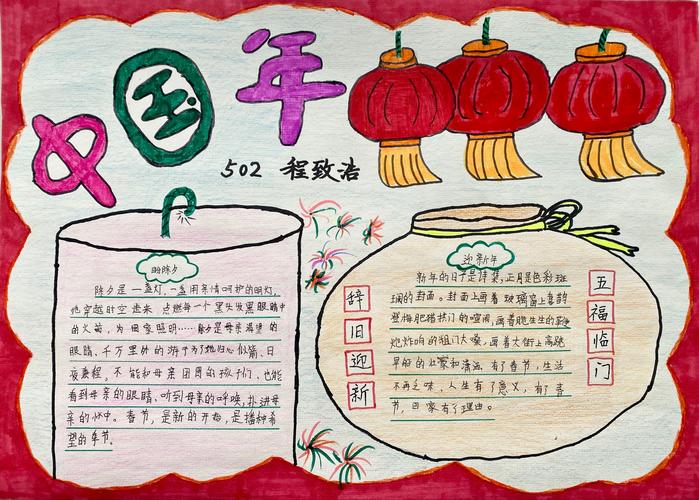 中国年
502 程致浩
盼除夕
除夕是一盏灯,一盏用亲情呵护的明灯,
他穿越时空走来 点燃每一个黑头发黑眼睛中
的火焰,为回家照明……除夕是母亲渴望的
眼睛,千万里外的游子为了她归心似箭、日
夜兼程,不能和母亲团圆的孩子们、也能
看到母亲的眼睛、听到母亲的呼唤,扑进母
亲的怀中。春节,是新的开始,是播种希
望的季节。
迎新年
新年的日子是诗集,正月是色彩斑
斓的封面。封面上画着玻璃窗上喜鹊
登梅肥猪拱门的喧闹,画着脆生生的
炮炸响的祖门大嗓,画着大街上高跷
旱船的壮家和潇洒,有了春节,生活
不再乏味,人生有了意义,有了春
节,回家有了理由。
辞旧迎新
五福临门